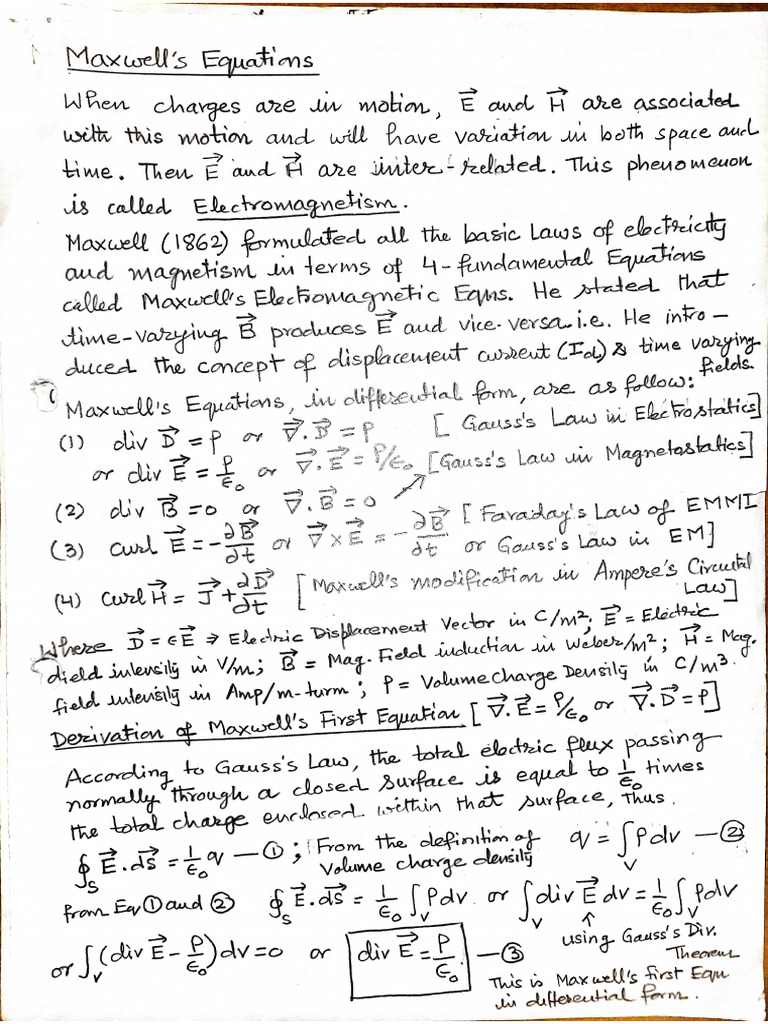 Maxwell's Equations
When charges are in motion, E⃗ and H⃗ are associated
with this motion and will have variation in both space and
time. Then E⃗ and H⃗ are inter-related. This phenomenon
is called Electromagnetism.
Maxwell (1862) formulated all the basic Laws of electricity
and magnetism in terms of 4-fundamental Equations
called Maxwell's Electromagnetic Eqns. He stated that
time-varying B⃗ produces E⃗ and vice-versa.i.e. He intro-
duced the concept of displacement current (Id) & time varying
fields.
Maxwell's Equations, in differential form, are as follow:
(1) div D⃗ = ρ or ∇⃗.D⃗ = ρ [Gauss's Law in Electrostatics]
or div E⃗ = ρ/ε₀ or ∇⃗.E⃗ = ρ/ε₀ [Gauss's Law in Magnetostatics]
(2) div B⃗ = 0 or ∇⃗.B⃗ = 0
(3) curl E⃗ = -∂B⃗/∂t or ∇⃗×E⃗ = -∂B⃗/∂t [Faraday's Law of EMMI
or Gauss's Law in EM]
(4) curl H⃗ = J⃗ + ∂D⃗/∂t [Maxwell's modification in Ampere's Circuital
Law]
Where D⃗ = εE⃗ ⇒ Electric Displacement Vector in C/m²; E⃗ = Electric
field intensity in V/m; B⃗ = Mag. Field induction in Weber/m²; H⃗ = Mag.
field intensity in Amp/m-turn; ρ = Volume Charge Density in C/m³.
Derivation of Maxwell's First Equation [∇⃗.E⃗ = ρ/ε₀ or ∇⃗.D⃗ = ρ]
According to Gauss's Law, the total electric flux passing
normally through a closed surface is equal to 1/ε₀ times
the total charge enclosed within that surface, Thus.
∮_S E⃗.ds⃗ = 1/ε₀ q — ① ; From the definition of
volume charge density q = ∫_V ρdv — ②
from Eq ① and ② ∮_S E⃗.ds⃗ = 1/ε₀ ∫_V ρdv. or ∫_V div E⃗ dv = 1/ε₀ ∫_V ρdv
↑
using Gauss's Div.
Theorem
or ∫_V (div E⃗ - ρ/ε₀) dv = 0 or div E⃗ = ρ/ε₀. — ③
This is Maxwell's first Equn
in differential form.